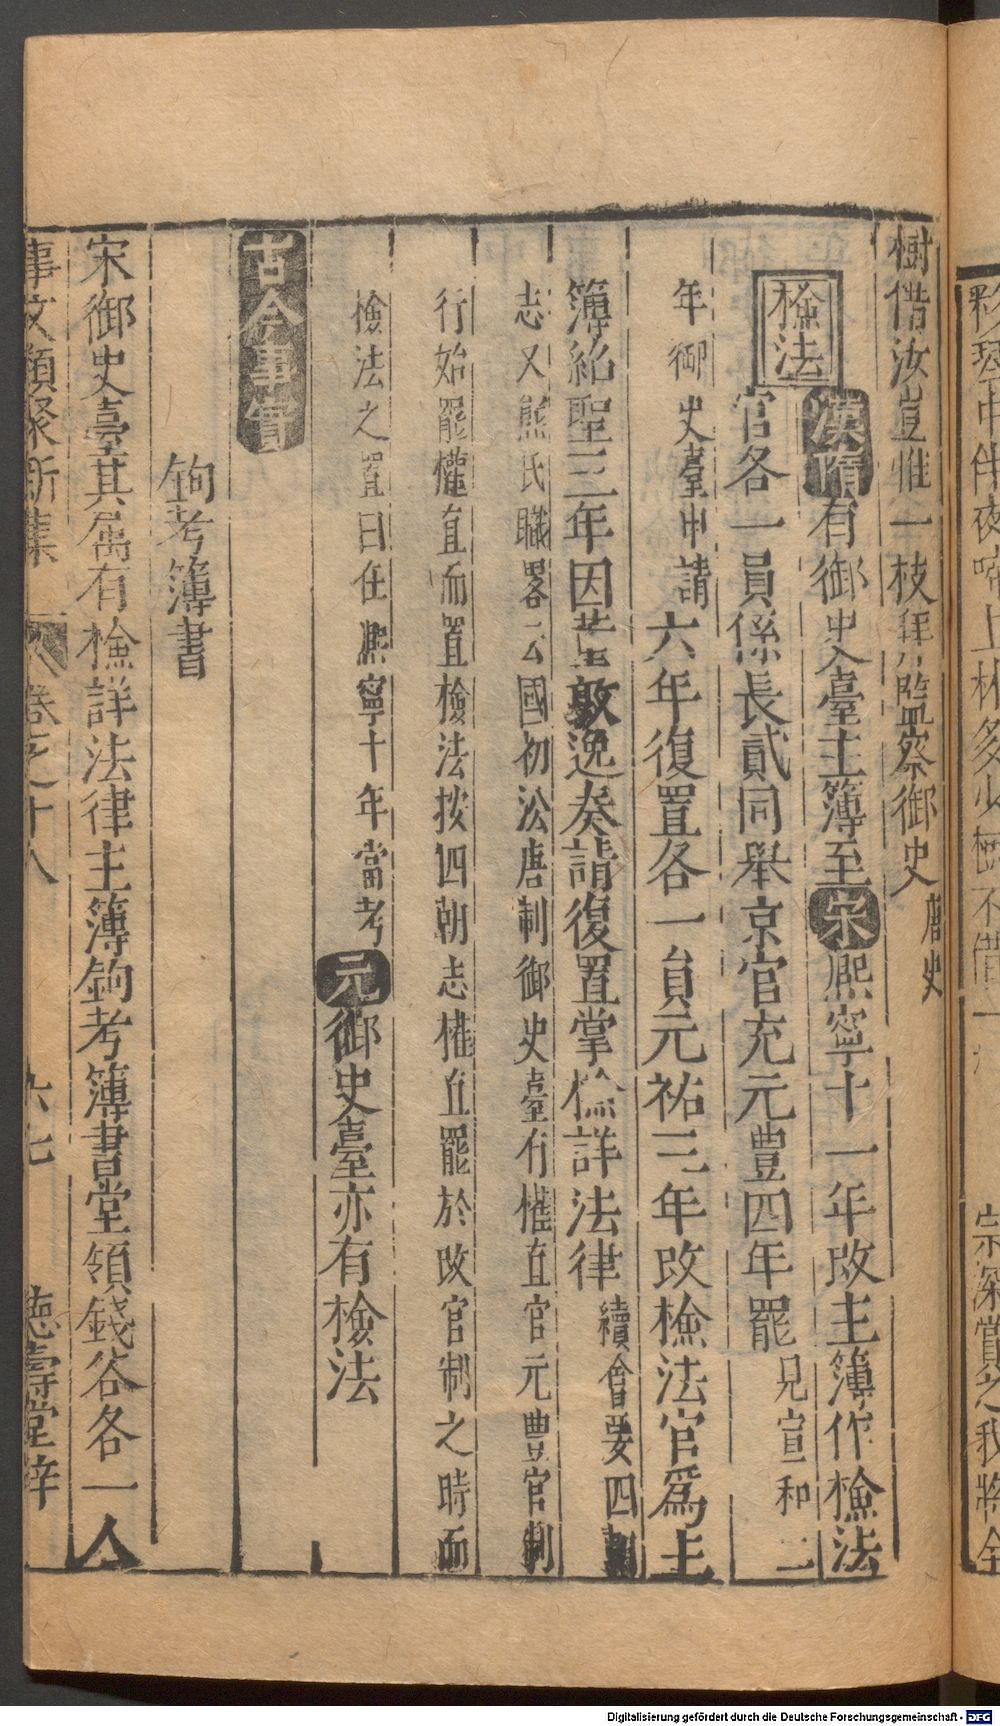 樹借汝豈惟一枝拜監察御史唐史
檢法
漢隋有御史臺主簿至宋熈寧十一年改主簿作檢法
官各一員係長貳同舉京官充元豊四年罷見宣和二
年御史臺申請六年復置各一員元祐三年改檢法官爲主
簿紹聖三年因董敦逸奏請復置掌檢詳法律續會要四朝
志又熊氏職畧云國初㳂唐制御史臺有權直官元豊官制
行始罷權直而置檢法按四朝志權直罷於改官制之時而
檢法之置曰在熈寧十年當考元御史臺亦有檢法
古今事實
鉤考簿書
宋御史臺其属有檢詳法律主簿鉤考簿書掌領錢各各一人
事文類聚新集 卷之十八 六七 德壽堂梓
琴中伴夜啼上林多少樹不借一
宗深賞之我將全
Digitalisierung gefördert durch die Deutsche Forschungsgemeinschaft - DFG